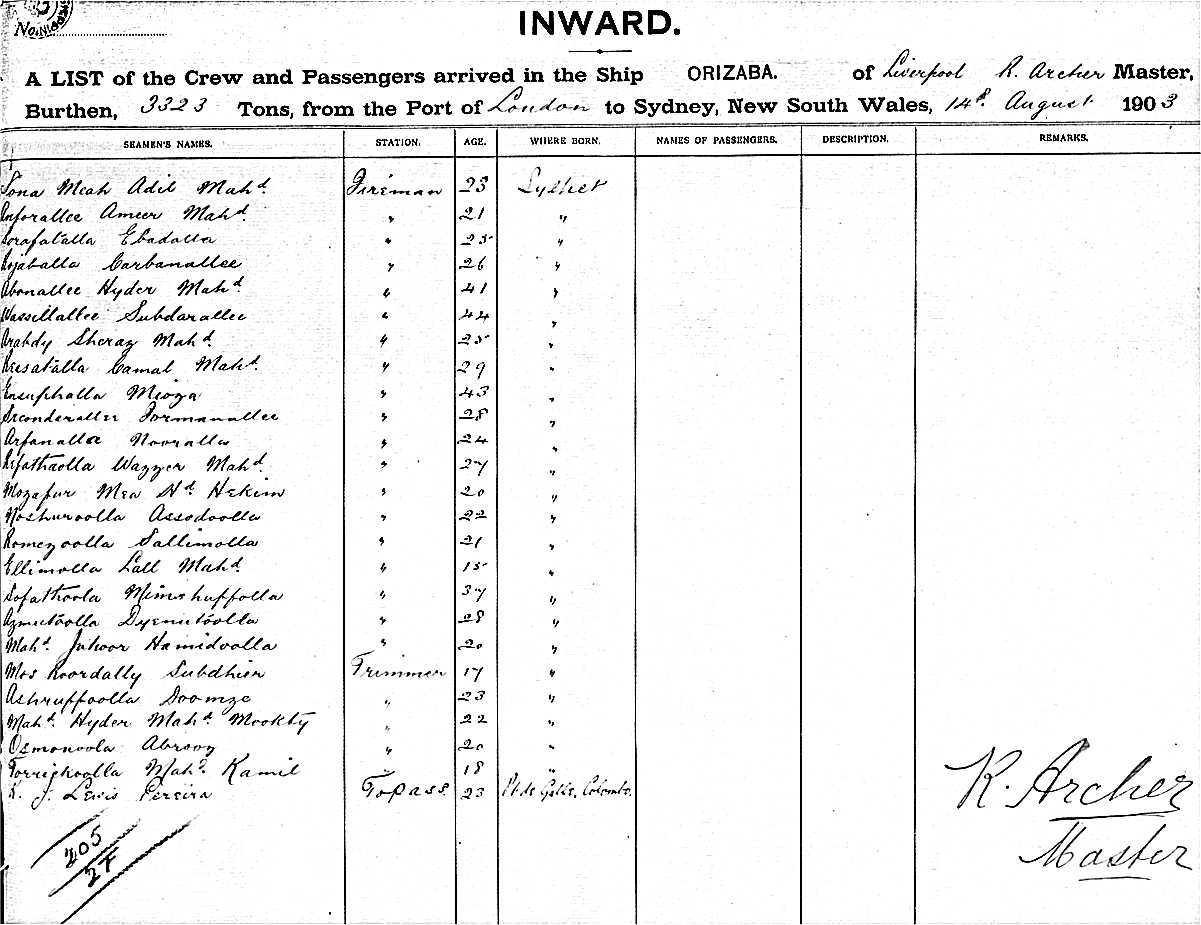 No.
INWARD.
A LIST of the Crew and Passengers arrived in the Ship ORIZABA. of Liverpool R. Archer Master,
Burthen, 3323 Tons, from the Port of London to Sydney, New South Wales, 14th August 1903
SEAMEN'S NAMES. STATION. AGE. WHERE BORN. NAMES OF PASSENGERS. DESCRIPTION. REMARKS.
Sona Meah Adil Mahd. Fireman 23 Sylhet
Ameer Mahd. " 21 "
Ebadalla " 25 "
Carbanallee " 26 "
Abonallee Hyder Mahd. " 41 "
Wassillallee Subdarallee " 44 "
Arabdy Sheraz Mahd. " 25 "
Camal Mahd. " 29 "
Ensuphalla Mioza " 43 "
Seconderallee Formanallee " 28 "
Arfanalla Nooralla " 24 "
Refathaolla Wazzer Mahd. " 27 "
Mozafur Mea Hd. Hekim " 20 "
Noshuroolla Assodoolla " 22 "
Romezoolla Sallimolla " 21 "
Ellimolla Lall Mahd. " 15 "
Sofathoola " 37 "
Azmutoolla Dyenutoolla " 28 "
Mahd. Juhoor Hamidoolla " 20 "
Mos Roordally Subdhier Trimmer 17 "
Ashruffoolla Doomze " 23 "
Mahd. Hyder Mahd. Mookty " 22 "
Osmonoola Abrooy " 20 "
Mahd. Kamil " 18 "
K. J. Lewis Pereira Topass. 23 Pt de Galle, Colombo.
205
27
R. Archer
Master